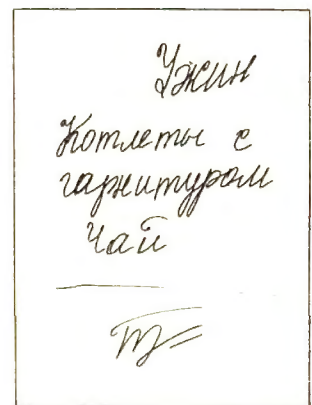 Ужин
Котлеты с
гарнитуром
Чай